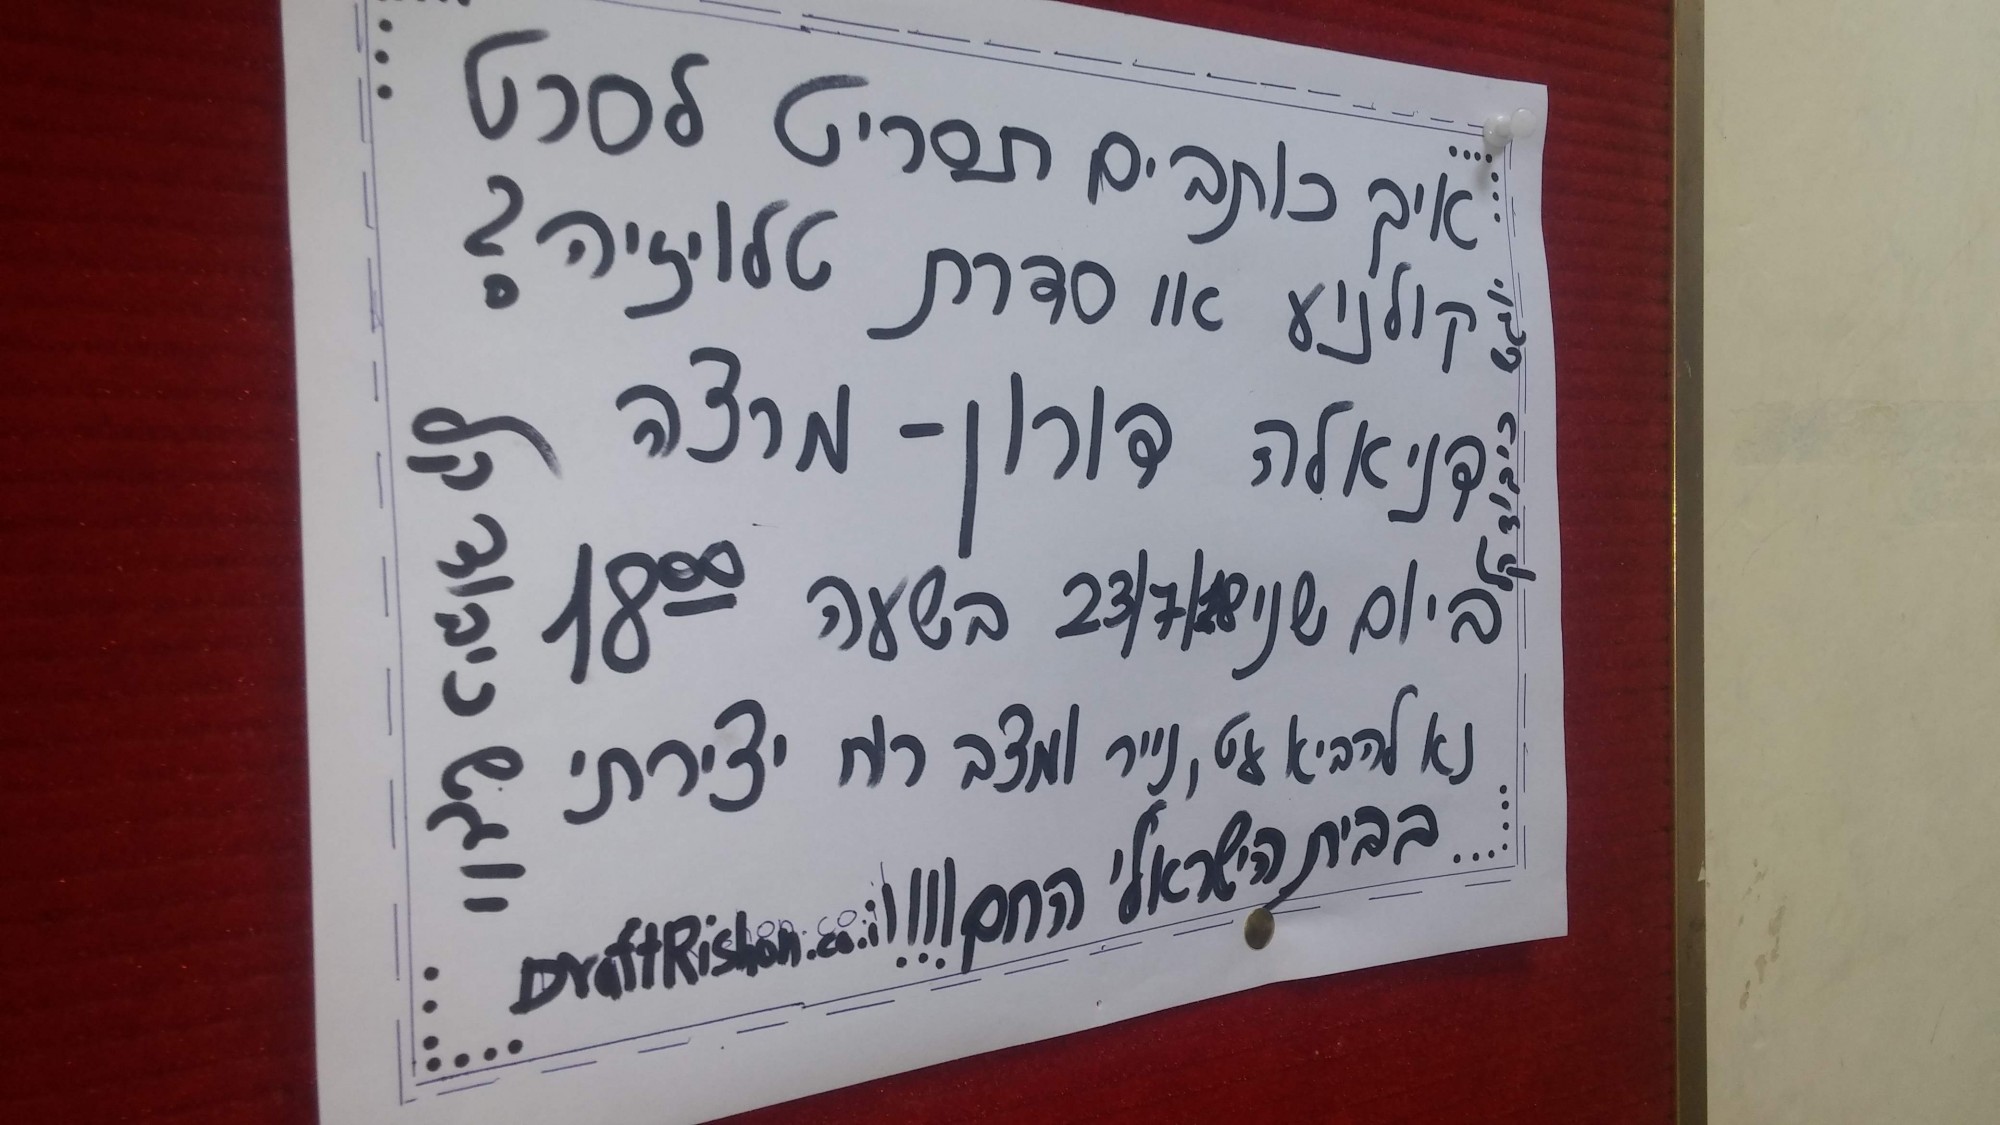 איך כותבים תסריט לסרט
קולנוע או סדרת טלויזיה?
דניאלה דורון - מרצה
ביום שני 23/7/18 בשעה 18⁰⁰
נא להביא עט, נייר ומצב רוח יצירתי
בבית הישראלי החם!!!!
DraftRishon.co.il
יוגש כיבוד קל